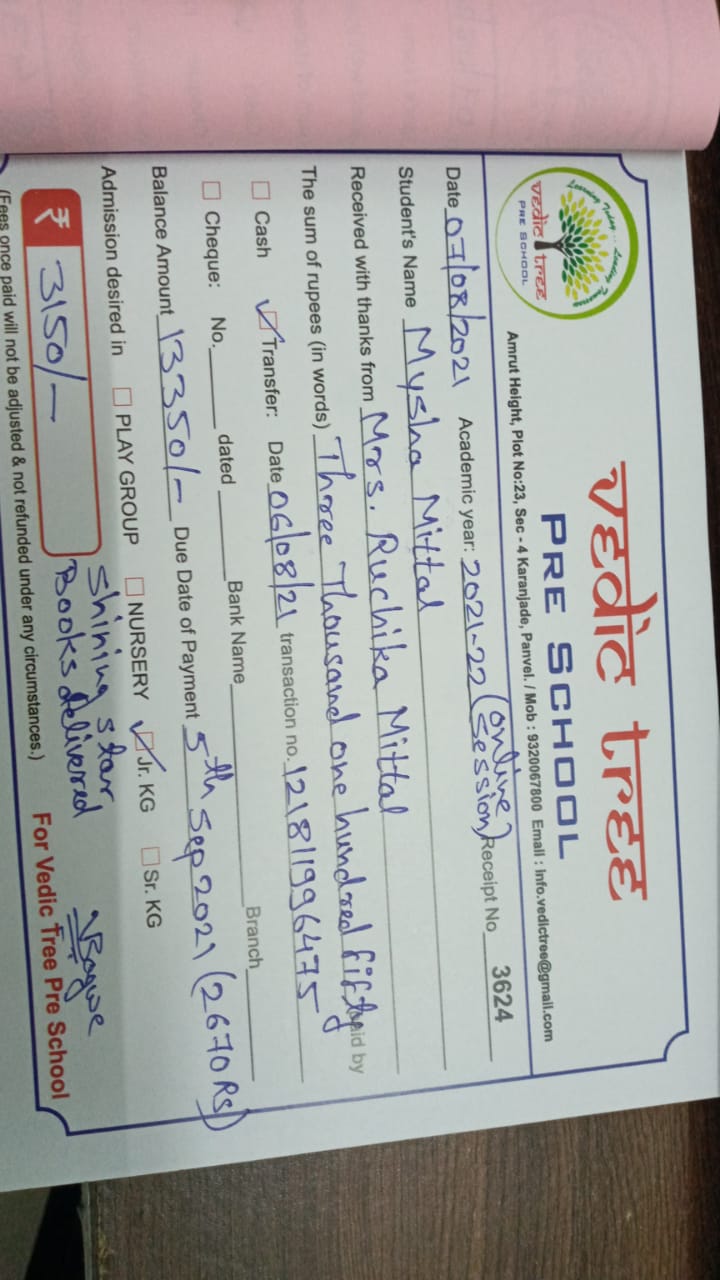 Learning Today... Leading Tomorrow
vedic tree
PRE SCHOOL
vedic tree
PRE SCHOOL
Amrut Height, Plot No:23, Sec - 4 Karanjade, Panvel. / Mob : 9320067800 Email : Info.vedictree@gmail.com
Date 07/08/2021 Academic year: 2021-22 (online session) Receipt No 3624
Student's Name Mysha Mittal
Received with thanks from Mrs. Ruchika Mittal
The sum of rupees (in words) Three Thousand one hundred fifty paid by
Cash Transfer: Date 06/08/21 transaction no. 121811996475
Cheque: No. dated Bank Name Branch
Balance Amount 13350/- Due Date of Payment 5th Sep 2021 (2670 RS)
Admission desired in PLAY GROUP NURSERY Jr. KG Sr. KG
₹ 3150/- Shining star
Books delivered
(Fees once paid will not be adjusted & not refunded under any circumstances.) For Vedic Tree Pre School